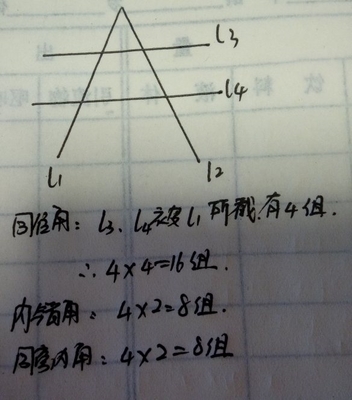 l3
l4
l1
l2
同位角：l3、l4被l1所截.有4组.
∴4×4=16组.
内错角：4×2=8组.
同旁内角：4×2=8组